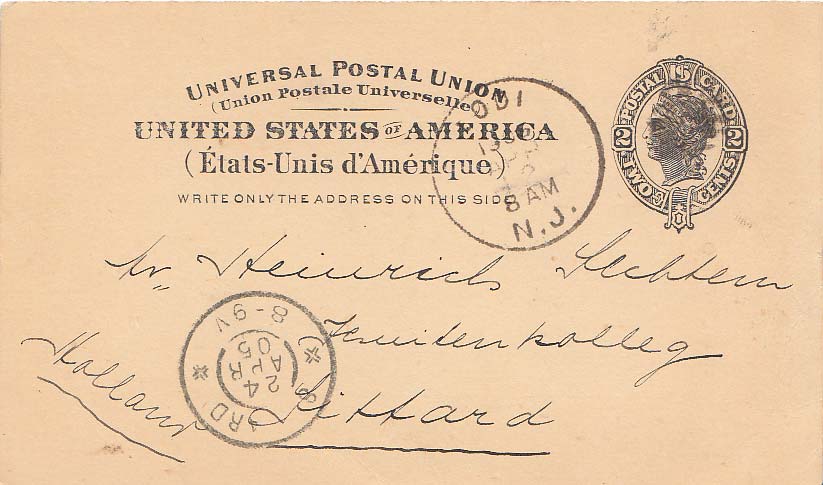 UNIVERSAL POSTAL UNION
(Union Postale Universelle)
UNITED STATES OF AMERICA
(États-Unis d'Amérique)
WRITE ONLY THE ADDRESS ON THIS SIDE
POSTAL CARD
2 2
TWO CENTS
ODI
8 AM
N.J.
Heinrich
Sittard
Holland
8-9V
24
APR
05